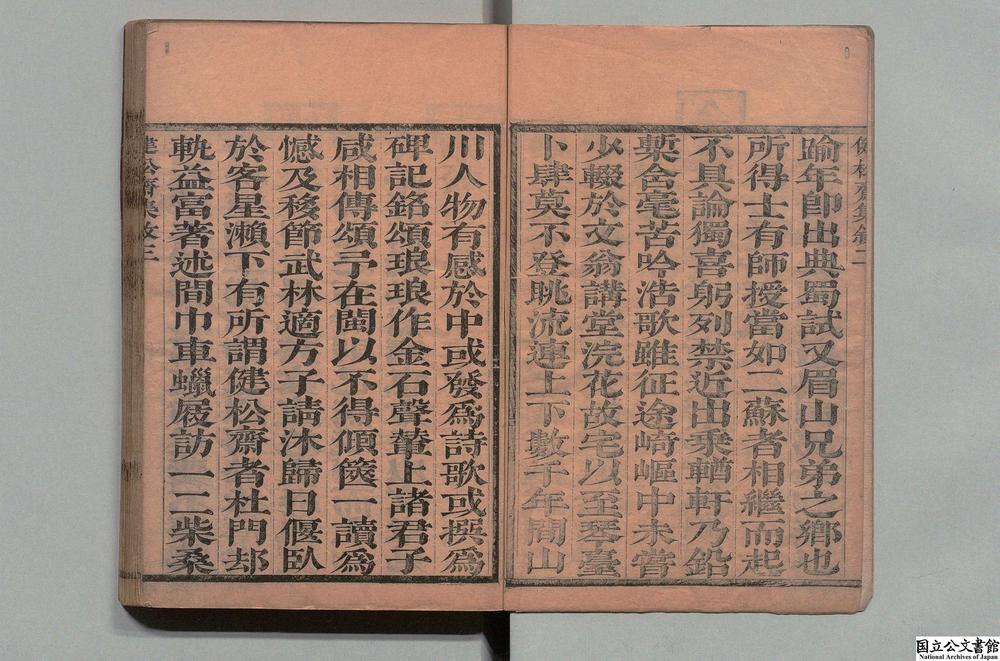 踰年即出典蜀試又眉山兄弟之鄉也
所得士有師授當如二蘇者相繼而起
不具論獨喜躬列禁近出乘輶軒乃鉛
槧含毫苦吟浩歌雖征途崎嶇中未嘗
少輟於文翁講堂浣花故宅以至琴臺
卜肆莫不登眺流連上下數千年間山
川人物有感於中或發爲詩歌或撰爲
碑記銘頌琅琅作金石聲輦上諸君子
咸相傳頌予在閩以不得傾篋一讀爲
憾及移節武林適方子請沐歸日偃臥
於客星瀨下有所謂健松齋者杜門却
軌益富著述間巾車蠟屐訪一二柴桑
健松齋集敘三
国立公文書館
National Archives of Japan